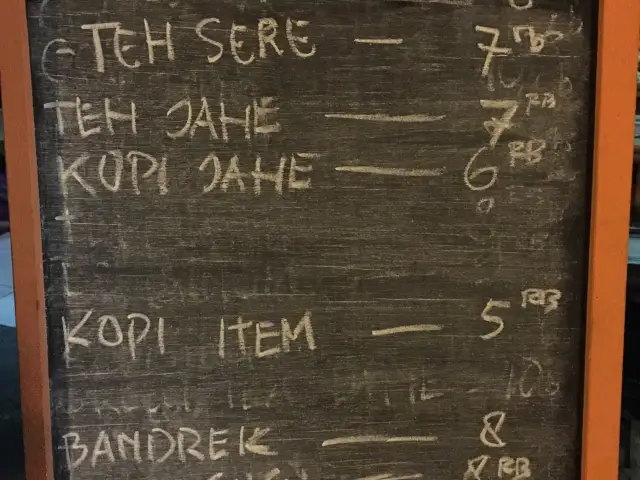 TEH SERE — 7 RB
TEH JAHE — 7 RB
KOPI JAHE — 6 RB
KOPI ITEM — 5 RB
BANDREK — 8
8 RB